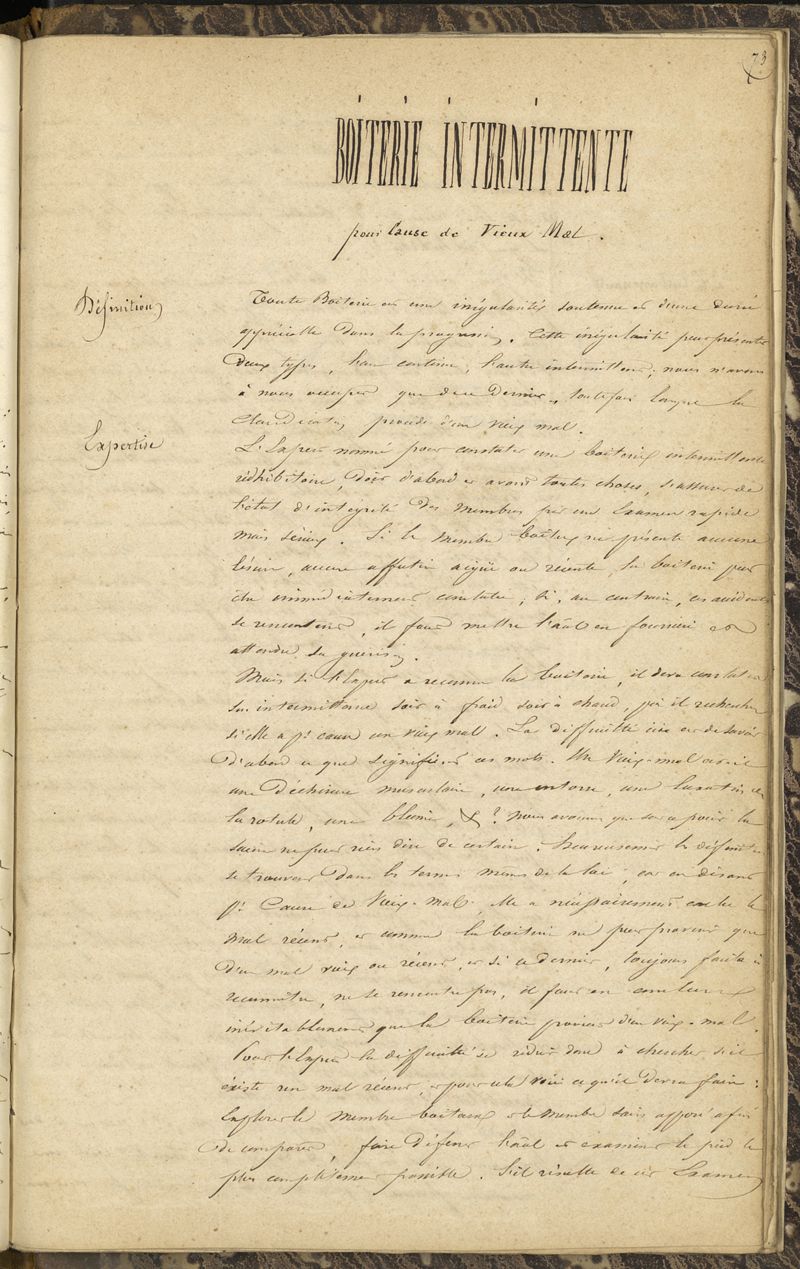 73
BOITERIE INTERMITTENTE
pour Cause de Vieux Mal.
Définition
Toute Boiterie est une irrégularité soutenue et d'une durée
appréciable dans la progression. Cette irrégularité peut présenter
Deux types, l'un continu, l'autre intermittent; nous n'avons
à nous occuper que de ce Dernier, toutefois lorsque la
Claudication procède d'un vieux mal.
Expertise
L'Expert nommé pour constater une boiterie intermittente
rédhibitoire, doit d'abord et avant toutes choses, s'assurer de
l'état d'intégrité des membres par un Examen rapide
mais sérieux. Si le membre boiteux ne présente aucune
lésion, aucune affection aigüe ou récente, la boiterie peut
être immédiatement constatée; si, au contraire, ces accidents
se rencontrent, il faut mettre l'aâl en fourrière et
attendre sa guérison.
Mais si l'Expert a reconnu la boiterie, il devra constater
son intermittence soit à froid soit à chaud, puis il recherchera
si elle a pr cause un vieux mal. La difficulté ici est de savoir
D'abord ce que signifient ces mots. Un Vieux-mal est-il
une Déchirure musculaire, une entorse, une luxation de
la rotule, une bleime, &? nous avouons que sur ce point la
science ne peut rien dire de certain. heureusement la définition
se trouve dans les termes mêmes de la loi, car en disant
pr Cause de Vieux-mal, elle a nécessairement exclu le
mal récent, et comme la boiterie ne peut provenir que
D'un mal vieux ou récent, et si ce dernier, toujours facile à
reconnaître, ne se rencontre pas, il faut en conclure
inévitablement que la boiterie provient d'un vieux-mal.
Pour l'Expert la difficulté se réduit donc à chercher s'il
éxiste un mal récent, et pour cela voici ce qu'il devra faire:
Explorer le membre boiteux et le membre sain opposé afin
de comparer, faire déferrer l'aâl et examiner le pied le
plus complètement possible. S'il résulte de cet Examen